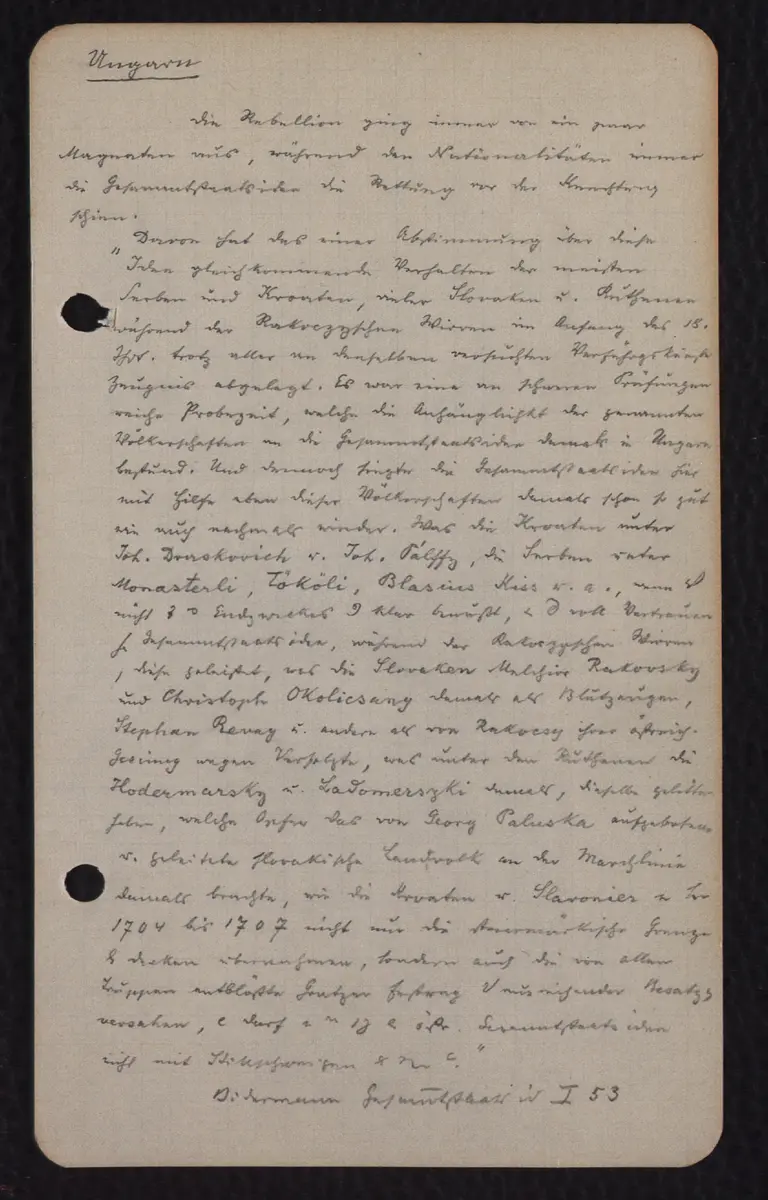 Ungarn
die Rebellion ging immer von ein paar
Magnaten aus, während den Nationalitäten immer
die Gesammtstaatsidee die Rettung vor der Knechtung
schien.
"Davon hat das einer Abstimmung über diese
Idee gleichkommende Verhalten der meisten
Serben und Kroaten, vieler Slovaken u. Ruthenen
während der Rakoczyschen Wirren im Anfang des 18.
Jhdt. trotz aller an denselben versuchten Verführgskünste
Zeugnis abgelegt. Es war eine an schweren Prüfungen
reiche Probezeit, welche die Anhänglichkt der genannten
Völkerschaften an die Gesammtstaatsidee damals in Ungarn
bestand. Und dennoch siegte die Gesammtstaatsidee hier
mit Hilfe eben dieser Völkerschaften damals schon so gut
wie auch nachmals wieder. Was die Kroaten unter
Joh. Draskovich u. Joh. Pálffy, die Serben unter
Monasterli, Tököli, Blasius Kiss u. a., wenn
nicht Endzweckes klar bewußt, voll Vertrauen
Gesammtstaatsidee, während der Rakoczyschen Wirren
, diese geleistet, was die Slovaken Melchior Rakovsky
und Christoph Okolicsany damals als Blutzeugen,
Stephan Revay u. andere als von Rakoczy ihrer östreich.
Gesinnung wegen Verfolgte, was unter den Ruthenen die
Hodermarsky u. Ladomerszki damals, dieselbe gelitten
haben, welche Opfer das von Georg Paluska aufgebotene
u. geleitete slovakische Landvolk an der Marchlinie
damals brachte, wie die Kroaten u. Slavonier
1704 bis 1707 nicht nur die steiermärkische Grenze
decken übernahmen, sondern auch die von allen
Truppen entblößte Gratzer Festung ausreichender Besatzg
versahen, darf östr. Gesammtstaatsidee
nicht mit Stillschweigen "
Bidermann Gesammtstaatsid I 53